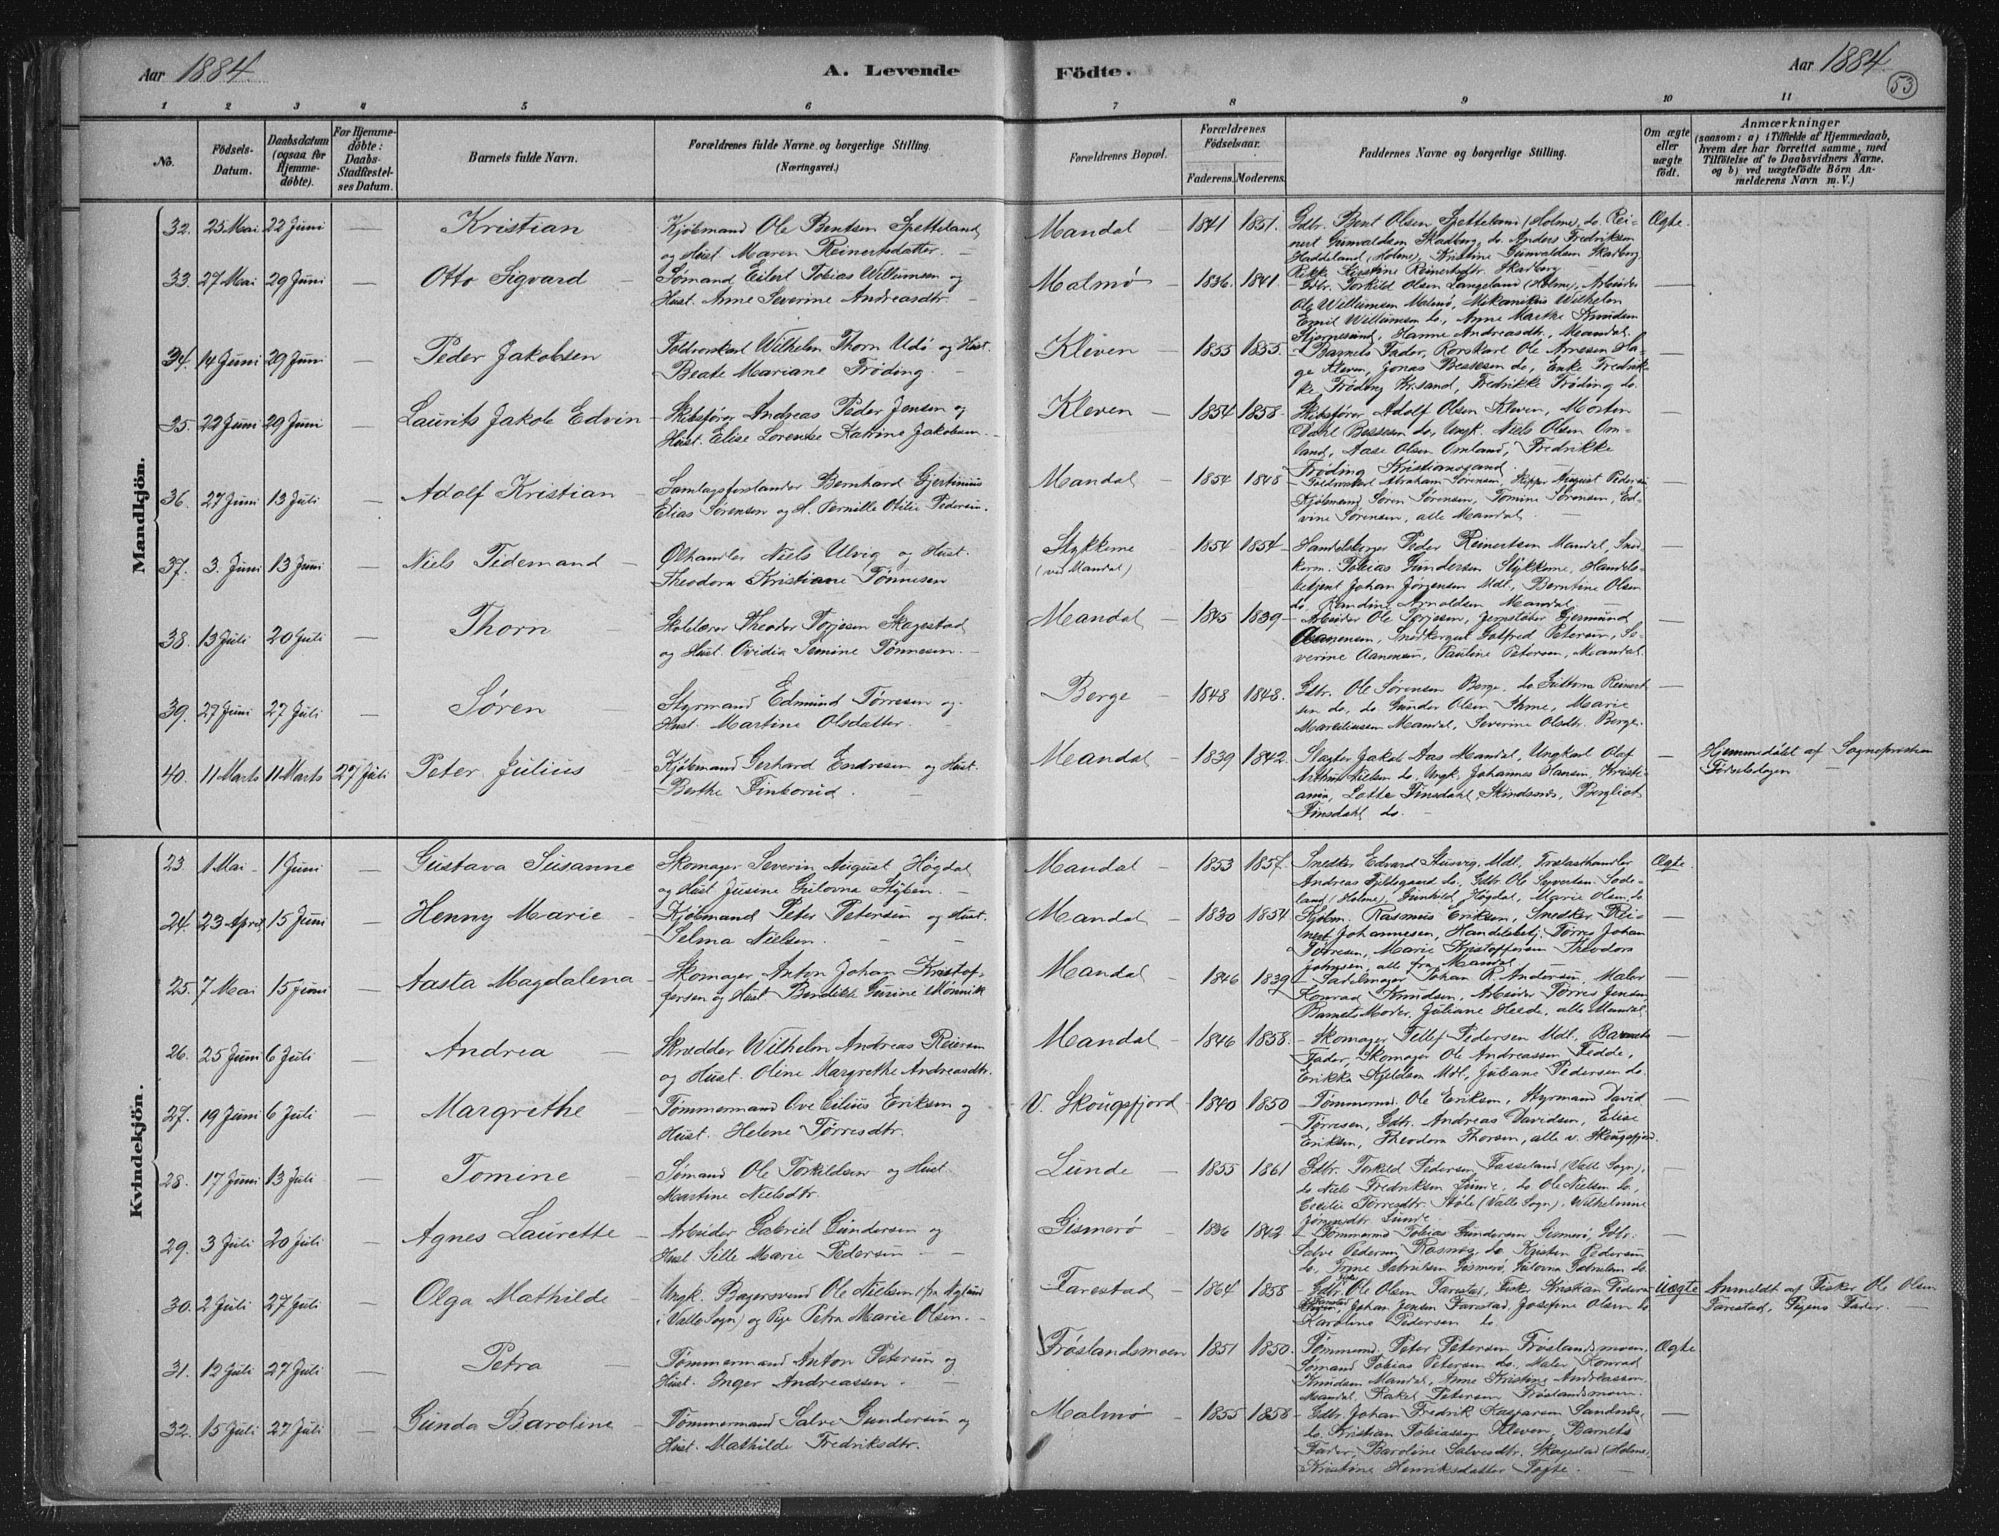 Aar 1884. A. Levende Födte. Aar 1884.
53
1 2 3 4 5 6 7 8 9 10 11
No.
Födsels-Datum.
Daabsdatum (ogsaa for Hjemme-döbte).
For Hjemme-döbte: Daabs-Stadfæstel-ses Datum.
Barnets fulde Navn.
Forældrenes fulde Navne og borgerlige Stilling. (Næringsvei.)
Forældrenes Bopæl.
Forældrenes Födselsaar.
Faderens. Moderens.
Faddernes Navne og borgerlige Stilling.
Om ægte eller uægte födt.
Anmærkninger
(saasom: a) i Tilfælde af Hjemmedaab, hvem der har forrettet samme, med Tilföielse af to Daabsvidners Navne, og b) ved uægtefödte Börn An-melderens Navn m. V.)
Mandkjön.
32. 25 Mai 22 Juni — Kristian Kjöbmand Ole Bentsen Spetteland og Hust. Maren Reinertsdatter. Mandal 1841 1851. Gdbr. Bent Olsen Spetteland (Holme), do. Reinert Gunvaldsen Skadberg, do. Anders Fredriksen Haddeland (Holme), Kristine Gunvaldsen Skadberg Ægte.
33. 27 Mai 29 Juni — Otto Sigvard Sømand Eilert Tobias Willumsen og Hust. Anne Severine Andreasdtr. Malmø 1836. 1841. Gdbr. Torkild Olsen Langeland (Holme), Arbeider Ole Willumsen Malmø, Mekanikus Wilhelm Emil Willumsen do, Anne Marthe Knudsen Hanne Andreasdtr. Mandal.
34. 14 Juni 29 Juni — Peder Jakobsen Toldrorskarl Wilhelm Thorn Udö og Hust. Beate Mariane Frøding. Kleven 1855 1855. Barnets Fader, Rorskarl Ole Arnesen Hage Kleven, Jonas Bessesen do, Enke Fredrikke Frøding Krsand, Fredrikke Frøding do.
35. 22 Juni 29 Juni — Laurits Jakob Edvin Skibsfører Andreas Peder Jensen og Hust. Elise Lorentse Katrine Jakobsen. Kleven 1854 1858. Skibsfører Adolf Olsen Kleven, Morten Dahl Bessesen do, Ungk. Niels Olsen Omland, Aase Olsen Omland, Fredrikke Frøding Kristianssand.
36. 27 Juni 13 Juli — Adolf Kristian Samlagsforstander Bernhard Gjertinius Elias Sørensen og H. Pernille Otilie Pedersen. Mandal 1854 1848 Toldrorskarl Abraham Sørensen, Skipper August Pedersen Kjöbmand Søren Sørensen, Tomine Sørensen, Edvine Sørensen, alle Mandal.
37. 3. Juni 13 Juni — Niels Tidemand Ølhandler Niels Ulvig og Hust. Theodora Kristiane Tønnesen Stykkerne (ved Mandal) 1854 1854. Handelsborger Peder Reinertsen Mandal, Snedkerm. Tobias Gundersen Stykkerne, Handelsbetjent Johan Jørgensen Mdl, Berntine Olsen do, Randine Arnoldsen Mandal
38. 13 Juli 20 Juli — Thorn Skolelærer Theodor Torjesen Skegestad og Hust. Ovidia Semine Tønnesen. Mandal 1845 1839 Arbeider Ole Torjesen, Jernstøber Gjermund Aanensen, Snedkergut Gotfred Petersen, Severine Aanensen, Pauline Petersen, Mandal.
39. 27 Juni 27 Juli — Søren Styrmand Edmund Tørresen og Hust. Martine Olsdatter. Berge 1848 1848. Gdbr. Ole Sørensen Berge, do Guttorm Reinertsen do, do Gunder Olsen Ihme, Marie Marciliussen Mandal, Severine Olsdtr. Berge.
40. 11 Marts 11 Marts 27 Juli Peter Julius Kjöbmand Gerhard Endresen og Hust. Berthe Finborud. Mandal 1839 1842. Slagter Jakob Aas Mandal, Ungkarl Olaf Arthur Nielsen do, Ungk. Johannes Hansen, Kristiania, Lotte Finsdahl, Skindsnes, Bergliot Finsdahl do. — Hjemmedøbt af Sognepresten Fødselsdagen
Kvindekjön.
23. 1 Mai 1 Juni — Gustava Susanne Skomager Severin August Høgdal og Hust. Jusine Gulovna Stiben. Mandal 1853 1857. Snedker Edvard Stusvig, Mdl, Trælasthandler Andreas Fjeldsgaard do, Gdbr. Ole Syvertsen Sodeland (Holme), Gunhild Høgdal, Marie Olsen do Ægte.
24. 23 April 15 Juni — Henny Marie Kjöbmand Peter Petersen og Hust. Selma Nielsen. Mandal 1830 1854. Kjöbm. Rasmus Eriksen, Snedker Reinert Johannesen, Handelsbetj. Tørres Johan Tørresen, Marie Kristoffersen Theodora alle fra Mandal
25. 7 Mai 15 Juni — Aasta Magdalena Skomager Anton Johan Kristoffersen og Hust. Bendikte Gurine Mönnik Mandal 1846 1839 Sadelmager Johan R. Andersen, Maler Konrad Knudsen, Arbeider Tørres Jensen Barnets Moder, Juliane Heede, alle Mandal
26. 25 Juni 6 Juli — Andrea Skrædder Wilhelm Andreas Reiersen og Hust. Oline Margrethe Andreasdtr. Mandal 1846 1858. Skomager Tellef Pedersen Mdl, Barnets Fader, Skomager Ole Andreassen Fedde, Erikka Kjeldsen Mdl, Juliane Pedersen do.
27. 19 Juni 6 Juli — Margrethe Tømmermand Ove Cilius Eriksen og Hust. Helene Tørresdtr. V. Skougsfjord 1840 1850 Tømmermd. Ole Eriksen, Styrmand David Tørresen, Gdbr. Andreas Davidsen, Elise Eriksen, Theodora Thorsen, alle v. Skougsfjord.
28. 17 Juni 13 Juli — Tomine Sømand Ole Torkildsen og Hust. Martine Nielsdtr. Lunde 1855 1861 Gdbr. Torkild Pedersen Fasseland (Valle Sogn), do Niels Fredriksen Lunde, do Ole Nielsen do, Cecilie Tørresdtr. Støle (Valle Sogn), Wilhelmine Jørgensdtr. Lunde
29. 3 Juli 20 Juli — Agnes Laurette Arbeider Gabriel Gundersen og Hust. Sille Marie Pedersen Gismerø 1836 1842 Tømmermd Tobias Gundersen Gismerø, Gdbr. Salve Pedersen do Kristen Pedersen do, Gismerø,
30. 2 Juli 27 Juli — Olga Mathilde Ungk. Bagersvend Ole Nielsen (fra i Valle Sogn) og Pige Petra Marie Olsen. Farestad 1864 1858 Gdbr. Ole Olsen Farstad, Fisker Kristian Pedersen Johan Jensen Farstad, Josefine Olsen do Karoline Pedersen do Uægte Anmeldt af Fisker Ole Olsen Farestad, Pigens Fader.
31. 12 Juli 27 Juli — Petra Tømmermand Anton Petersen og Hust. Inger Andreassen. Frøslandsmoen 1851 1850. Tømmermd. Peter Petersen Frøslandsmoen, Sømand Tobias Petersen do, Maler Konrad Knudsen Mandal, Anne Kristine Andreassen Mandal, Rakel Petersen Frøslandsmoen. Ægte
32. 15 Juli 27 Juli — Gunda Baroline Tømmermand Salve Gundersen og Hust. Mathilde Fredriksdtr. Malmø 1855 1858 Gdbr. Johan Fredrik Kaspersen Sandnes, do Kristian Tobiassen Kleven, Barnets Fader, Baroline Salvesdtr. Skagestad (Holme), Kristine Henriksdatter Tagte.